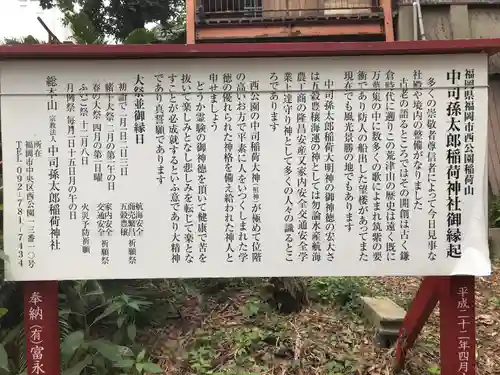 福岡県福岡市西公園稲荷山
中司孫太郎稲荷神社御縁起
多くの崇敬者尊信者によって今日見事な
社殿や境内の整備がなりました
古老の語るところではその開闢は古く鎌
倉時代に遡りこの荒津山の歴史は遠く既に
万葉集の中に数多くの歌によまれ筑紫の要
衝であり防人の船出した望楼があってまた
現在でも風光景勝の地でもあります
中司孫太郎稲荷大明神の御神徳の宏大さ
は五穀豊穣海運の神としては勿論水産航海
農工商の隆昌安産又家内安全交通安全学
業上達守り神として多くの人々の識るとこ
ろであります
西公園の中司稲荷大神(明神)が極めて位階
の高いお方で平素に人为いつくしまれた学
徳の優れられた神格を備え給われた神人と
申せましょう
どうか霊験の御神徳を頂いて健康で苦を
抜いて楽しみとなし悲しみを転じて楽とな
すことが必成就するという事であり大精神
であり其誓願であります
大祭並御縁日
初詣で一月一日二日三日
緒午大祭二月の第二午の日
春の大祭四月の第三日曜
ふいご祭十二月八日
月例祭 毎月十五日月の午の日
航海安全
商売繁昌 祈願
五穀豊穣
家内安全
交通安全 祈願
火災予防祈願
総本山 宗教法人 中司孫太郎稲荷神社
所在
福岡市中央区西公園一三番一〇号
TEL 092-781-7434
奉納
(有)富永
平成二十二年四月